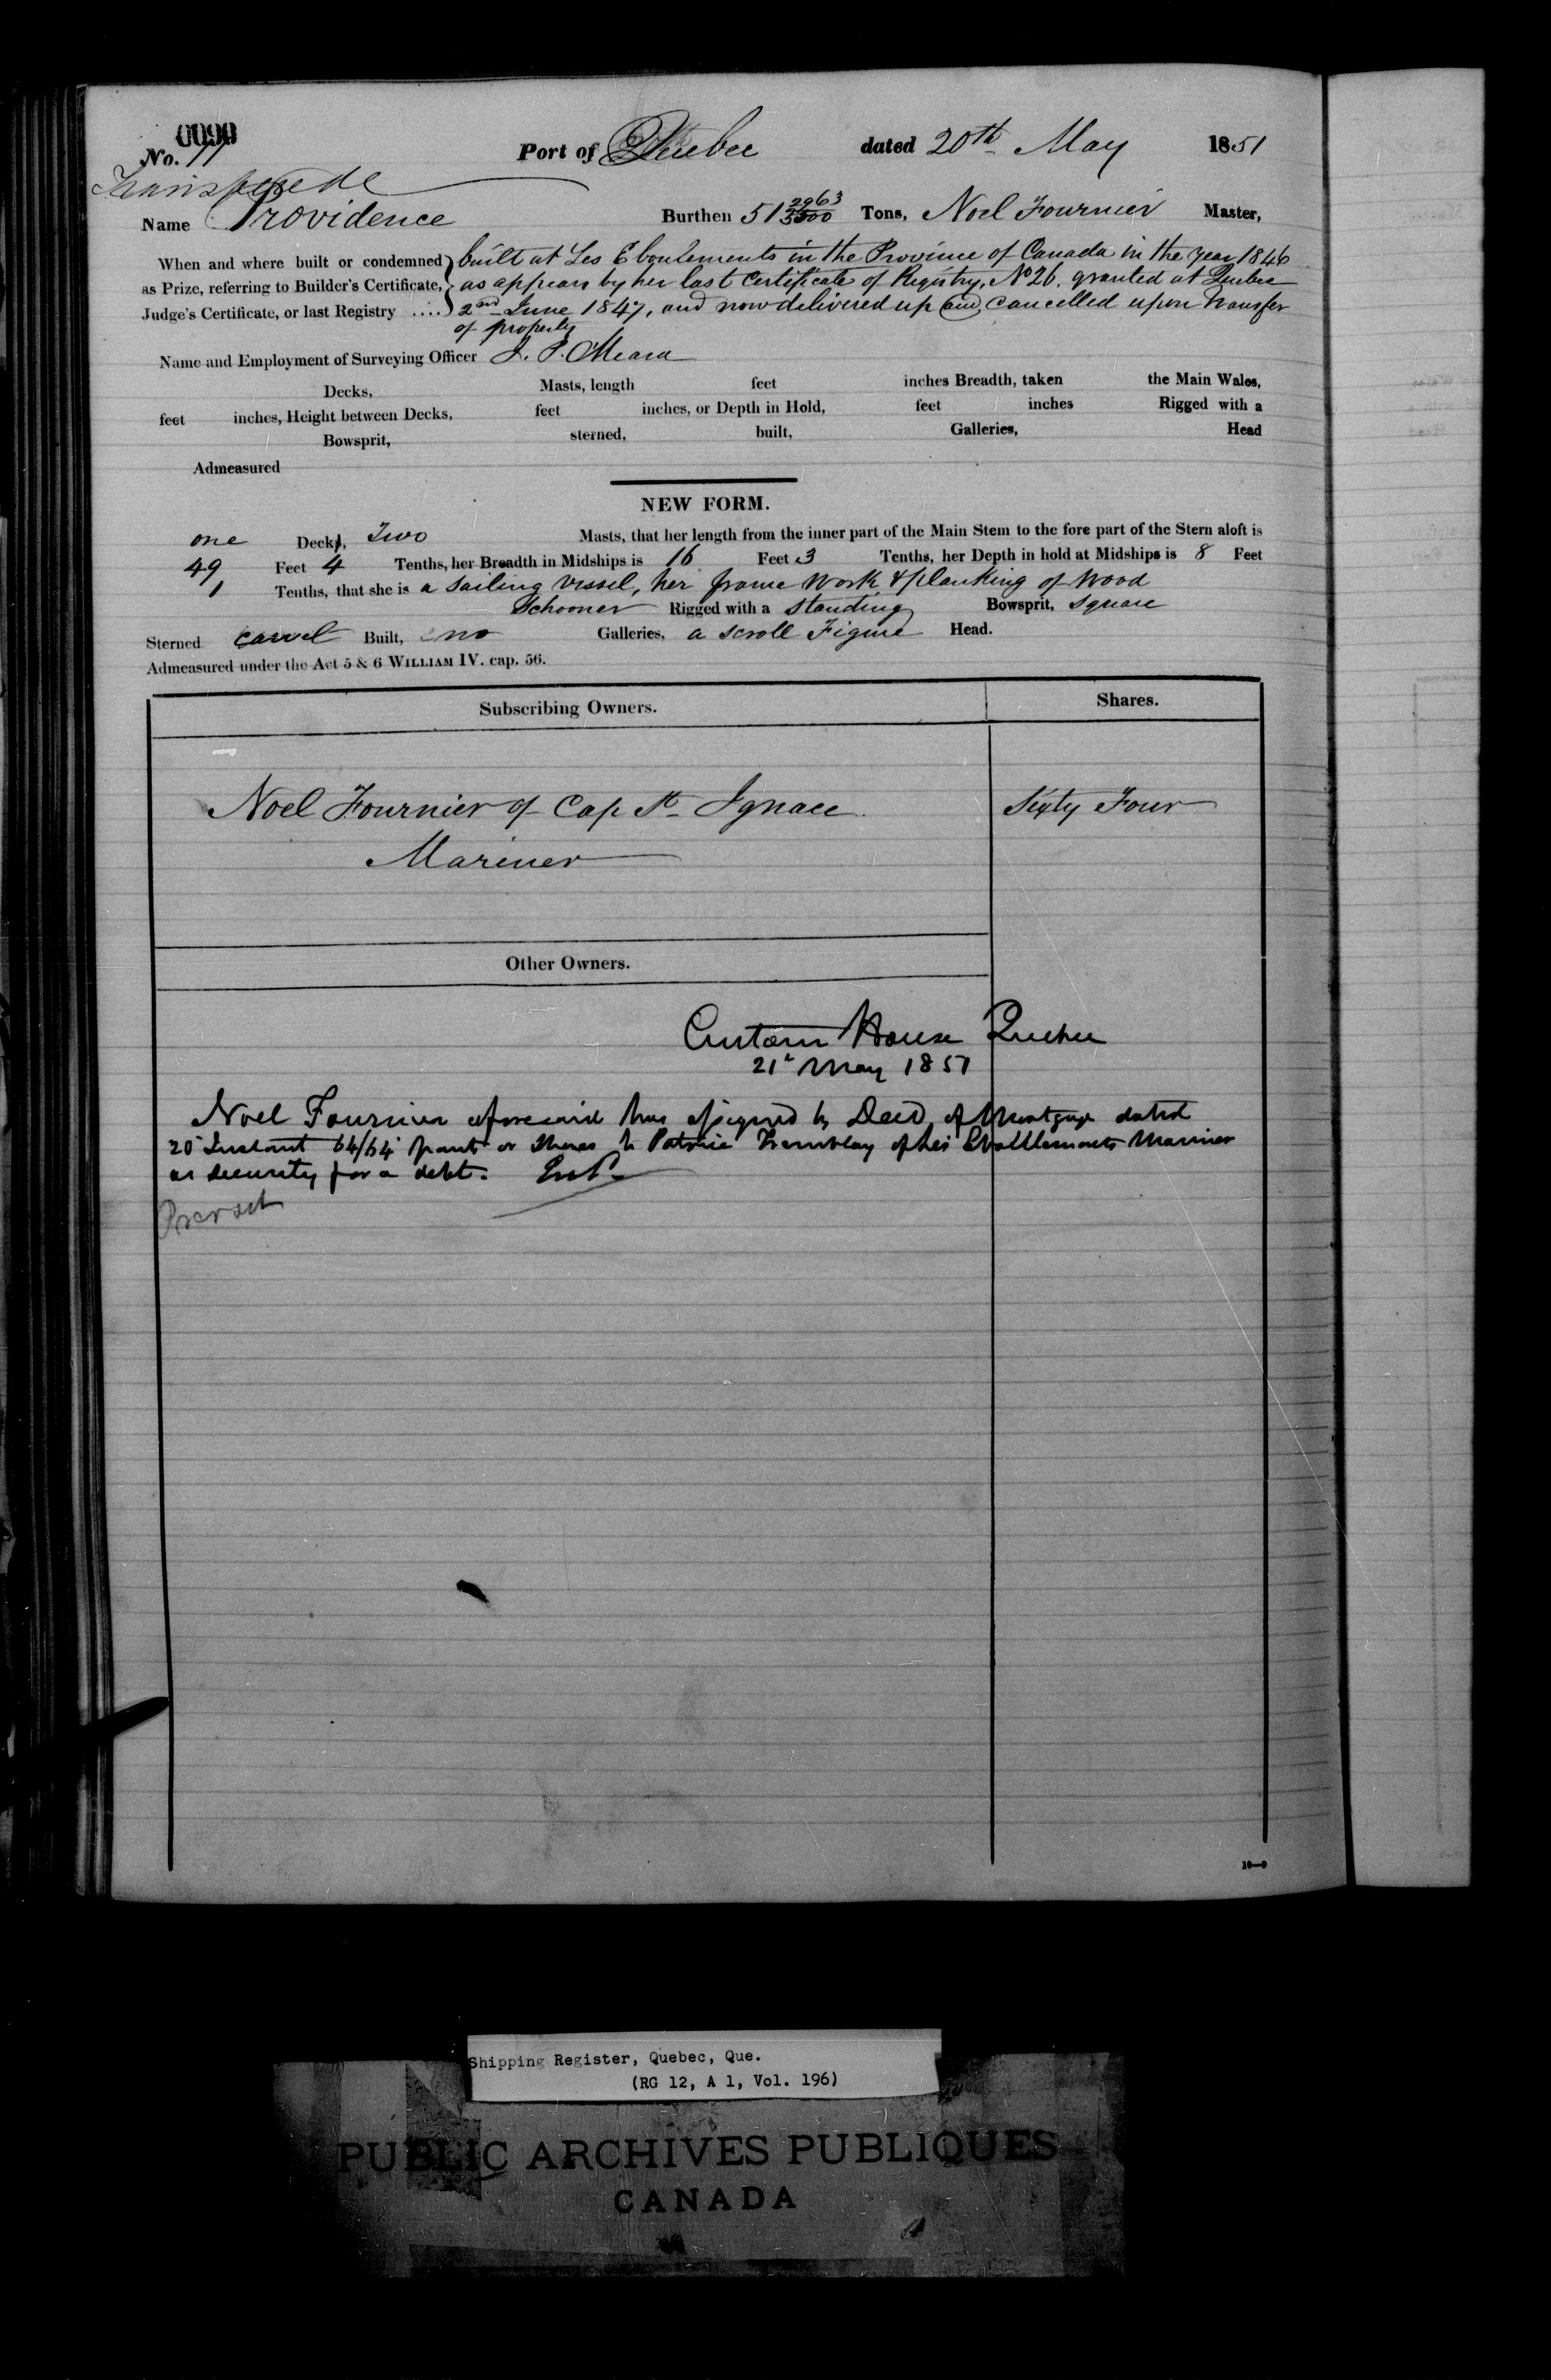 0090
No. 77 Port of Quebec dated 20th May 1851
Transferred
Name Providence Burthen 51 2963/3500 Tons, Noel Fournier Master,
When and where built or condemned built at Les Eboulements in the Province of Canada in the year 1846
as Prize, referring to Builder's Certificate, as appears by her last Certificate of Registry, No 26, granted at Quebec
Judge's Certificate, or last Registry .... 2nd June 1847, and now delivered up and cancelled upon transfer
of property
Name and Employment of Surveying Officer J. P. OMeara
Decks, Masts, length feet inches Breadth, taken the Main Wales,
feet inches, Height between Decks, feet inches, or Depth in Hold, feet inches Rigged with a
Bowsprit, sterned, built, Galleries, Head
Admeasured
NEW FORM.
one Deck, Two Masts, that her length from the inner part of the Main Stem to the fore part of the Stern aloft is
49 Feet 4 Tenths, her Breadth in Midships is 16 Feet 3 Tenths, her Depth in hold at Midships is 8 Feet
1 Tenths, that she is a sailing vessel, her frame work & planking of wood
Schooner Rigged with a standing Bowsprit, square
Sterned carvel Built, no Galleries, a scroll Figure Head.
Admeasured under the Act 5 & 6 WILLIAM IV. cap. 56.
Subscribing Owners. Shares.
Noel Fournier of Cap St Ignace Sixty Four
Mariner
Other Owners.
Custom House Quebec
21st May 1851
Noel Fournier aforesaid has assigned by Deed of Mortgage dated
20 Instant 64/64 parts or Shares to Patrice Tremblay of Les Mariner
as security for a debt.
10—9
Shipping Register, Quebec, Que.
(RG 12, A 1, Vol. 196)
PUBLIC ARCHIVES PUBLIQUES
CANADA